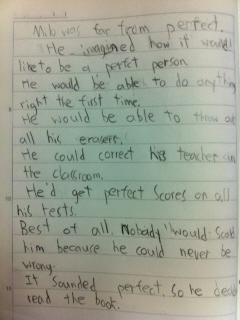 Milo was far from perfect.
He imagined how it would
like to be a perfet person
He would be able to do anything
right the first time.
He would be able to throw
all his erasers.
He could correct his teacher in
the classroom.
He'd get perfect scores on all
his tests.
Best of all, Nobody would
him because he could never be
wrong.
It sounded perfect. So he
read the book.